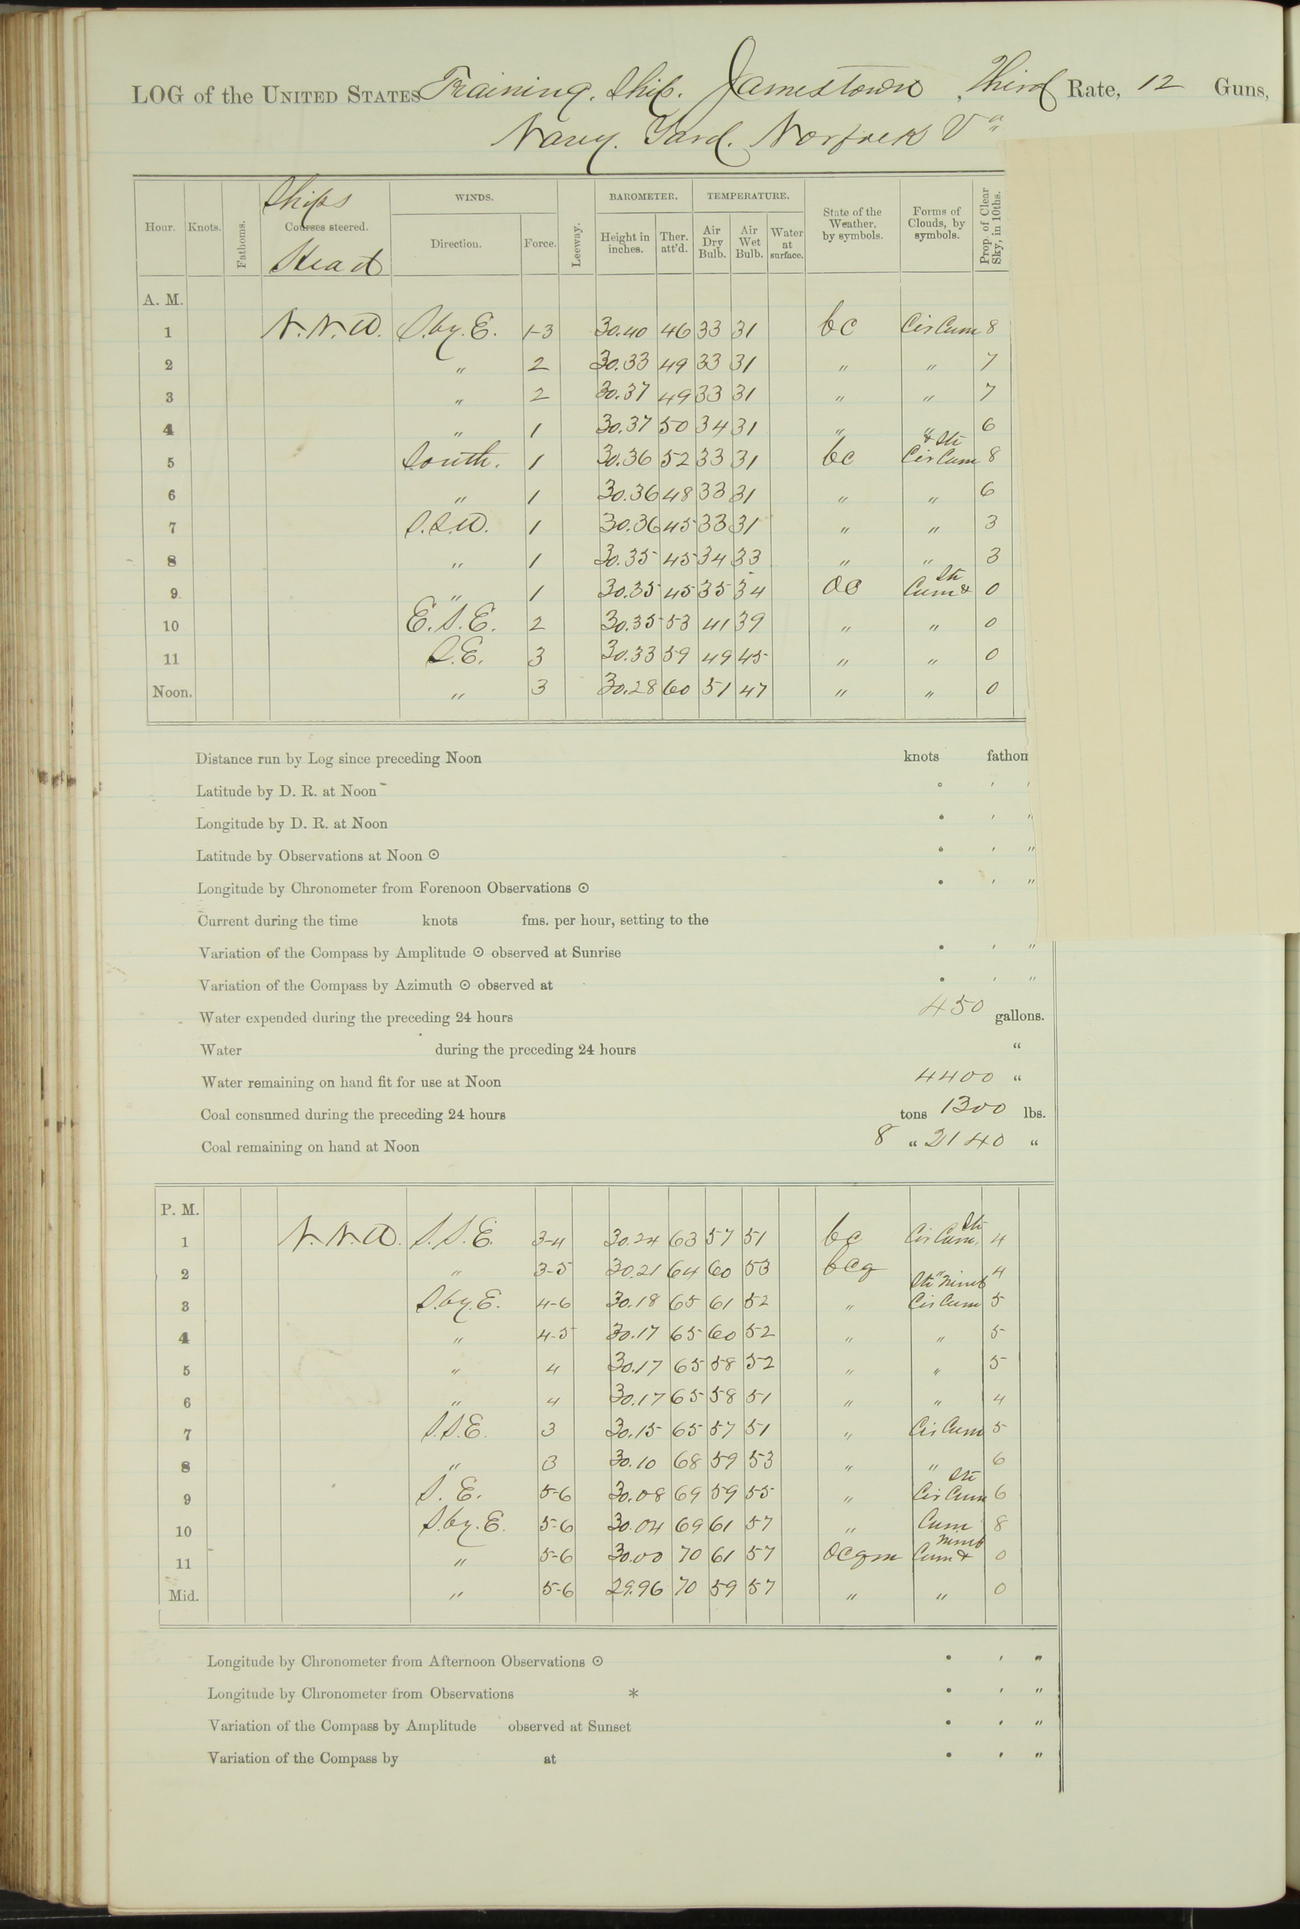 LOG of the UNITED STATES Training. Ship. Jamestown, Third Rate, 12 Guns,
Navy. Yard. Norfolk Va
Hour. Knots. Fathoms. Ships Courses steered. Head WINDS. Direction. Force. Leeway. BAROMETER. Height in inches. Ther. att'd. TEMPERATURE. Air Dry Bulb. Air Wet Bulb. Water at surface. State of the Weather, by symbols. Forms of Clouds, by symbols. Prop. of Clear Sky, in 10ths.
A. M.
1 N.N.W. S.by.E. 1-3 30.40 46 33 31 bc Cir Cum 8
2 " 2 30.33 49 33 31 " " 7
3 " 2 30.37 49 33 31 " " 7
4 " 1 30.37 50 34 31 " " 6
5 South. 1 30.36 52 33 31 bc Cir Cum & Str 8
6 " 1 30.36 48 33 31 " " 6
7 S.S.W. 1 30.36 45 33 31 " " 3
8 " 1 30.35 45 34 33 " " 3
9 " 1 30.35 45 35 34 oc Cum & Str 0
10 E.S.E. 2 30.35 53 41 39 " " 0
11 S.E. 3 30.33 59 49 45 " " 0
Noon. " 3 30.28 60 51 47 " " 0
Distance run by Log since preceding Noon knots fathom
Latitude by D. R. at Noon ° ' "
Longitude by D. R. at Noon ° ' "
Latitude by Observations at Noon ⊙ ° ' "
Longitude by Chronometer from Forenoon Observations ⊙ ° ' "
Current during the time knots fms. per hour, setting to the
Variation of the Compass by Amplitude ⊙ observed at Sunrise ° ' "
Variation of the Compass by Azimuth ⊙ observed at ° ' "
Water expended during the preceding 24 hours 450 gallons.
Water during the preceding 24 hours "
Water remaining on hand fit for use at Noon 4400 "
Coal consumed during the preceding 24 hours tons 1300 lbs.
Coal remaining on hand at Noon 8 " 2140 "
P. M.
1 N.N.W. S.S.E. 3-4 30.24 63 57 51 bc Cir Cum, Str 4
2 " 3-5 30.21 64 60 53 bcq " 4
3 S.by.E. 4-6 30.18 65 61 52 " Str Nimb Cir Cum 5
4 " 4-5 30.17 65 60 52 " " 5
5 " 4 30.17 65 58 52 " " 5
6 " 4 30.17 65 58 51 " " 4
7 S.S.E. 3 30.15 65 57 51 " Cir Cum 5
8 " 3 30.10 68 59 53 " " 6
9 S. E. 5-6 30.08 69 59 55 " Cir Cum Str 6
10 S.by.E. 5-6 30.04 69 61 57 " Cum 8
11 " 5-6 30.00 70 61 57 ocqm Cum & Nimb 0
Mid. " 5-6 29.96 70 59 57 " " 0
Longitude by Chronometer from Afternoon Observations ⊙ ° ' "
Longitude by Chronometer from Observations * ° ' "
Variation of the Compass by Amplitude observed at Sunset ° ' "
Variation of the Compass by at ° ' "